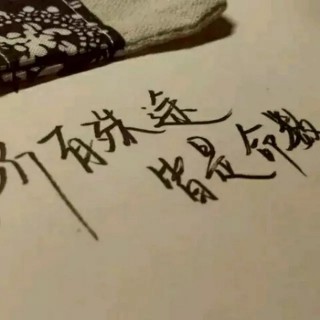 所有殊途
皆是命数